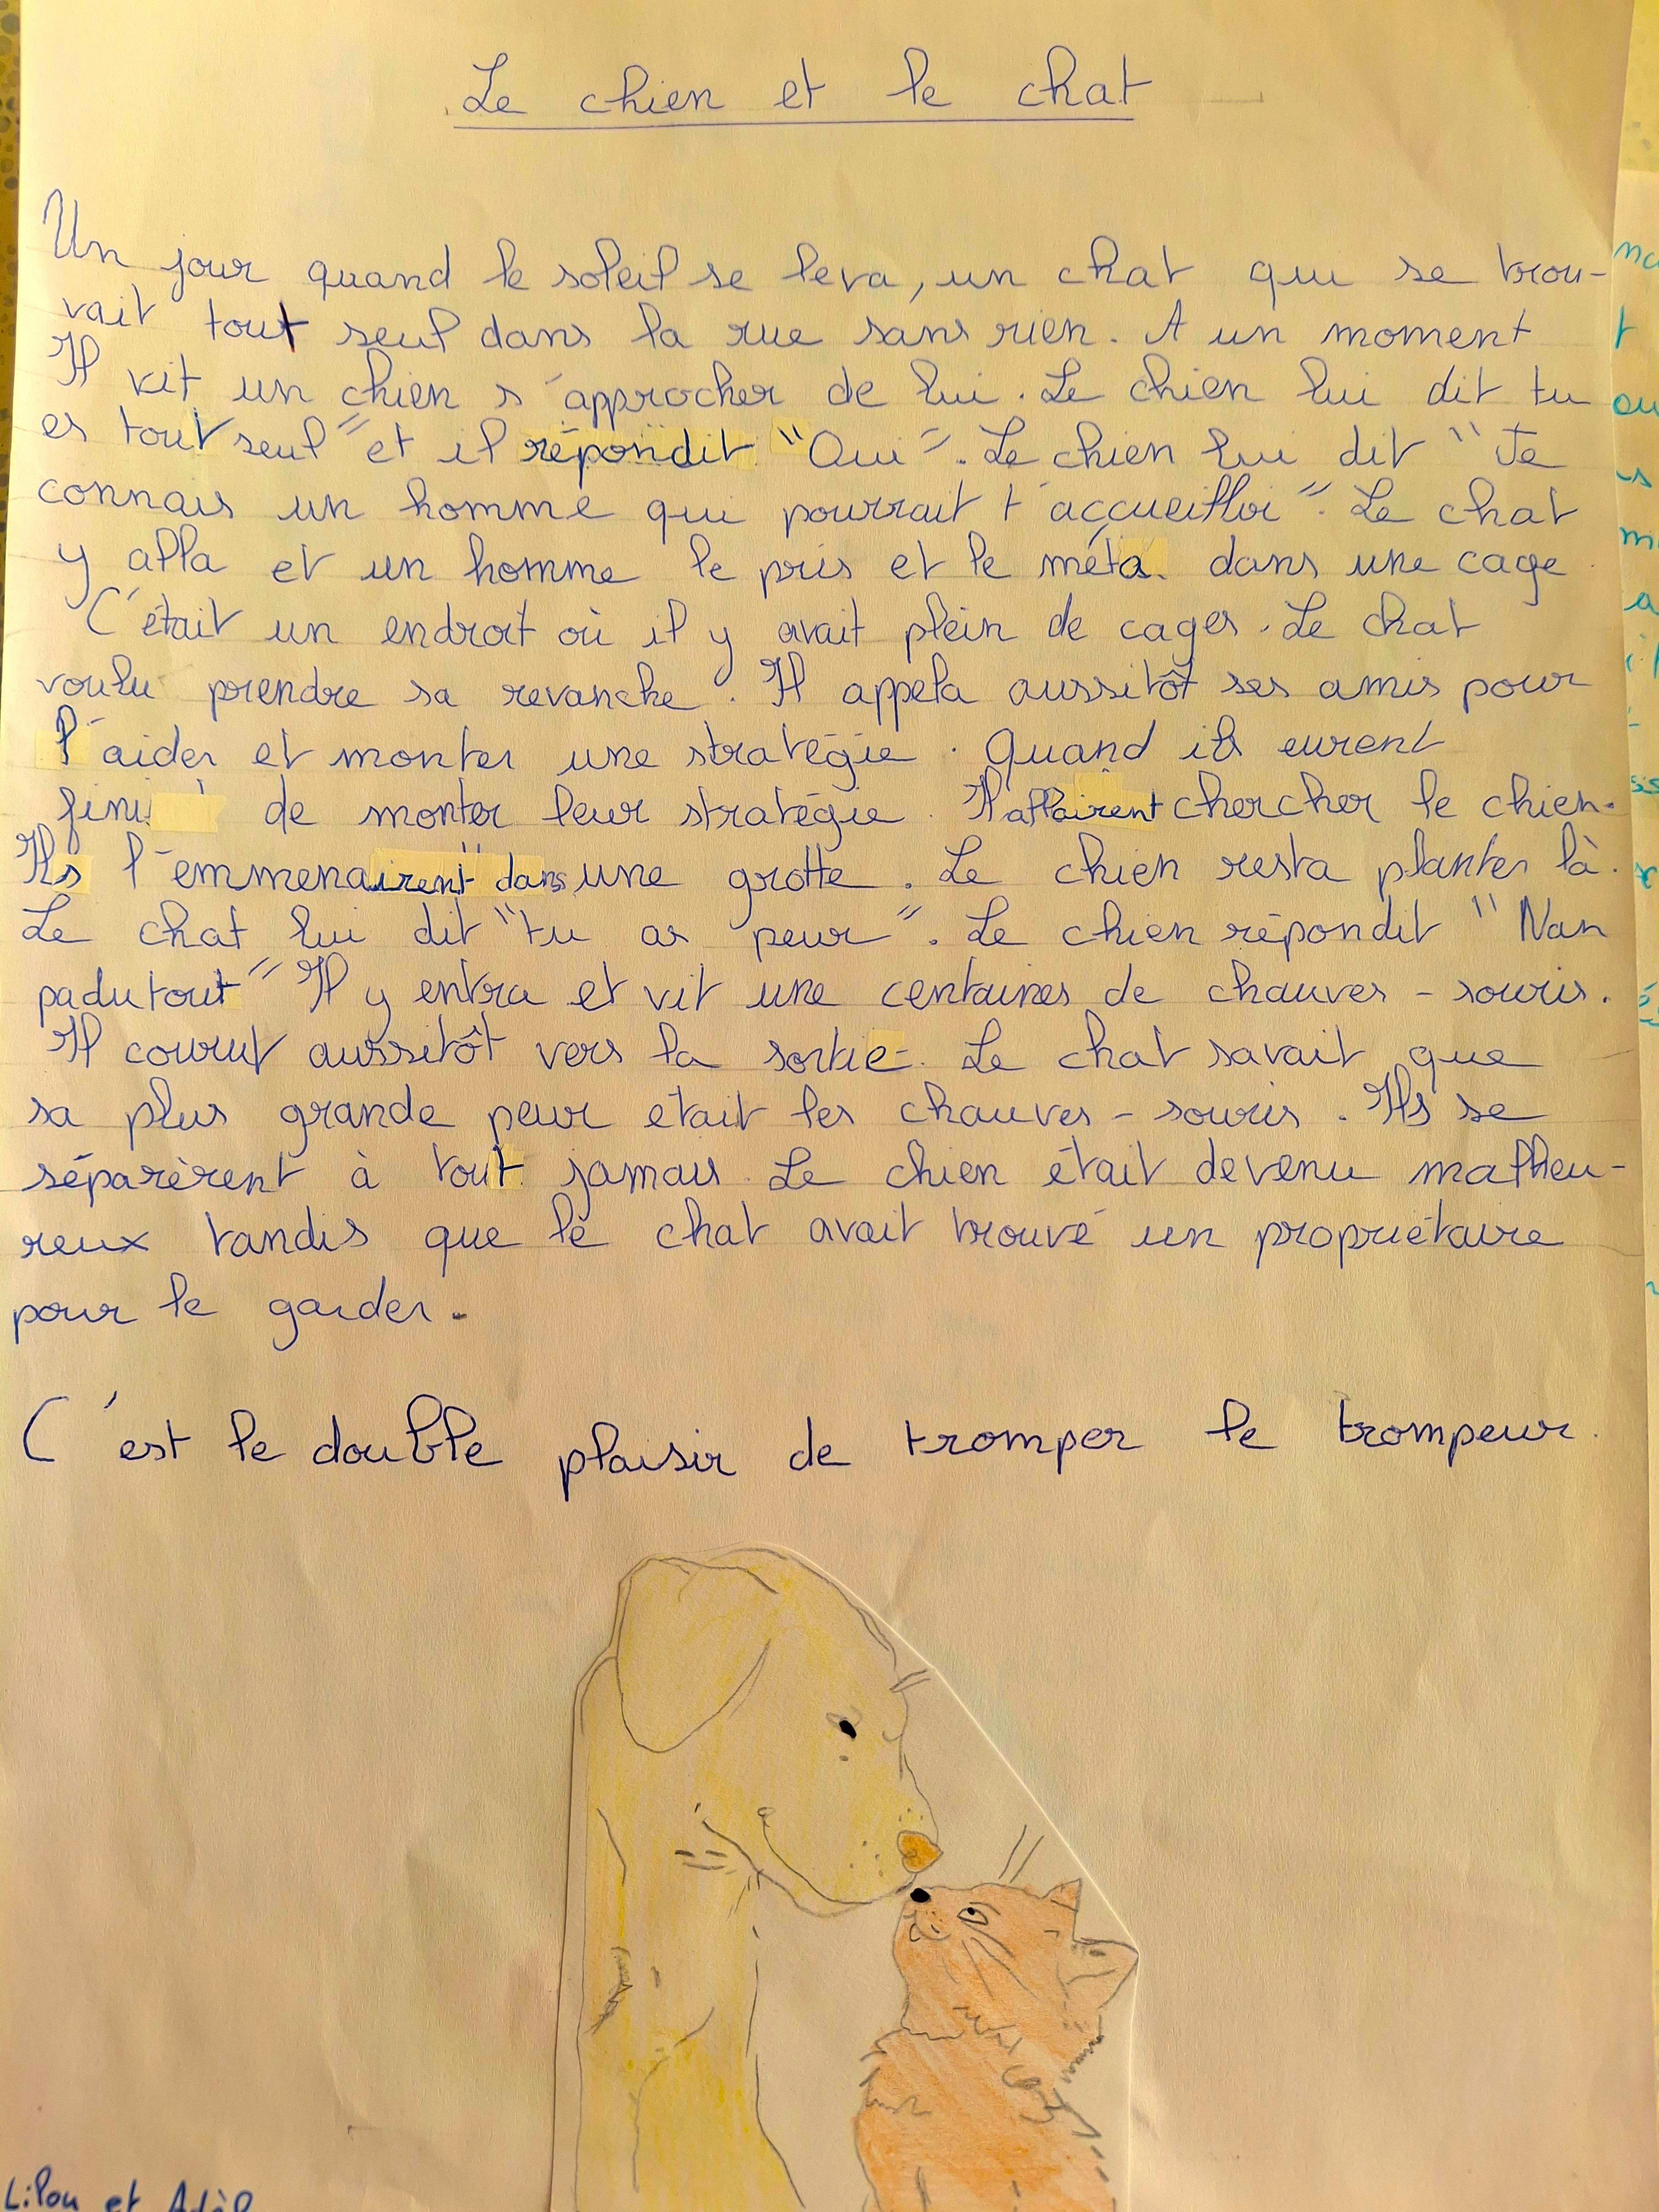 Le chien et le chat
Un jour quand le soleil se leva, un chat qui se trou-
vait tout seul dans la rue sans rien. A un moment
Il vit un chien s'approcher de lui. Le chien lui dit tu
es tout seul" et il répondit "Oui". Le chien lui dit "Je
connais un homme qui pourrait t'accueillir". Le chat
y alla et un homme le pris et le méta dans une cage
C'était un endroit où il y avait plein de cages. Le chat
voulu prendre sa revanche. Il appela aussitôt ses amis pour
l'aider et monter une stratégie. Quand ils eurent
fini de monter leur stratégie. Il allairent chercher le chien.
Ils l'emmenairent dans une grotte. Le chien resta planter là.
Le chat lui dit "tu as peur". Le chien répondit "Nan
padutout" Il y entra et vit une centaines de chauves-souris.
Il courut aussitôt vers la sortie. Le chat savait que
sa plus grande peur etait les chauves-souris. Ils se
séparèrent à tout jamais Le chien était devenu malheu-
reux tandis que le chat avait trouvé un propriétaire
pour le garder.
C'est le double plaisir de tromper le trompeur.
Lilou et